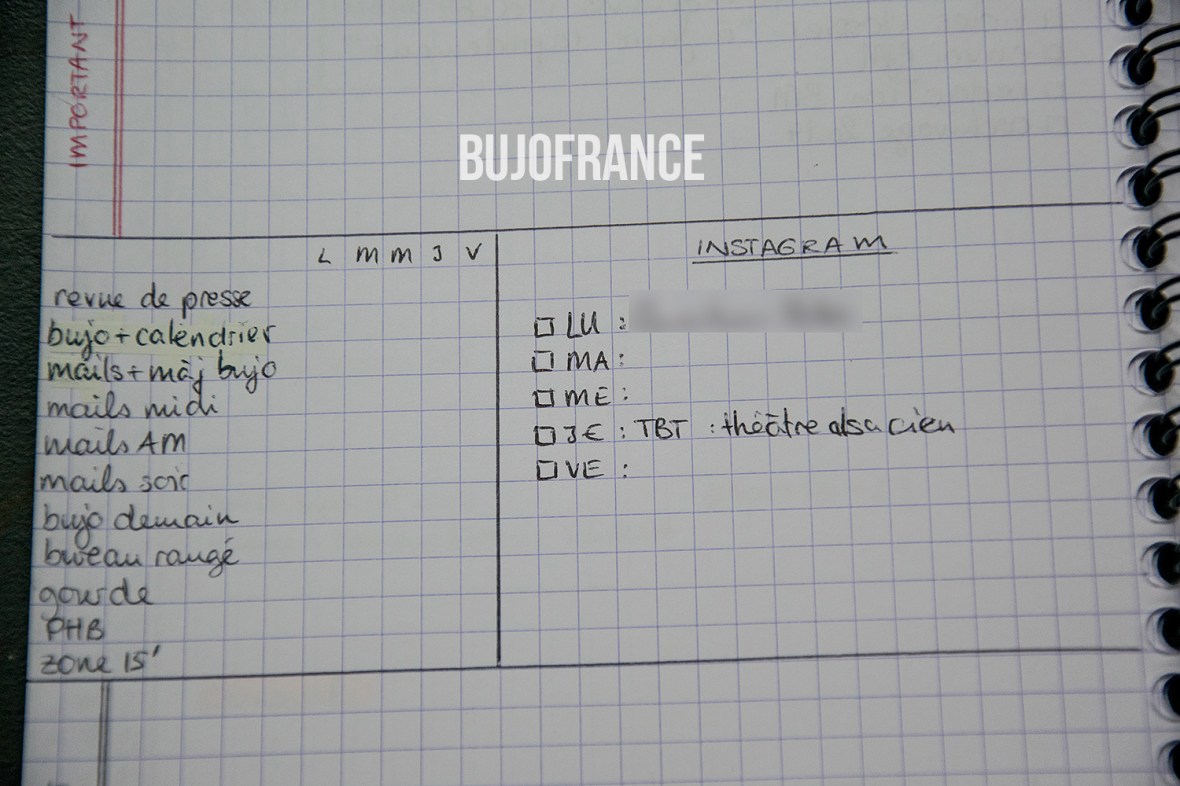 IMPORTANT
BUJOFRANCE
L M M J V
revue de presse
bujo + calendrier
mails + màj bujo
mails midi
mails AM
mails soir
bujo demain
bureau rangé
gourde
PHB
zone 15'
INSTAGRAM
LU :
MA :
ME :
JE : TBT : théâtre alsacien
VE :